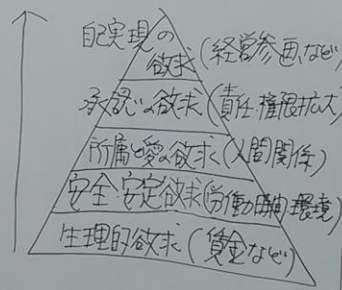 自己実現の
欲求(経営参画など)
承認の欲求(責任・権限拡大)
所属と愛の欲求(人間関係)
安全・安定欲求(労働時間・環境)
生理的欲求(賃金など)